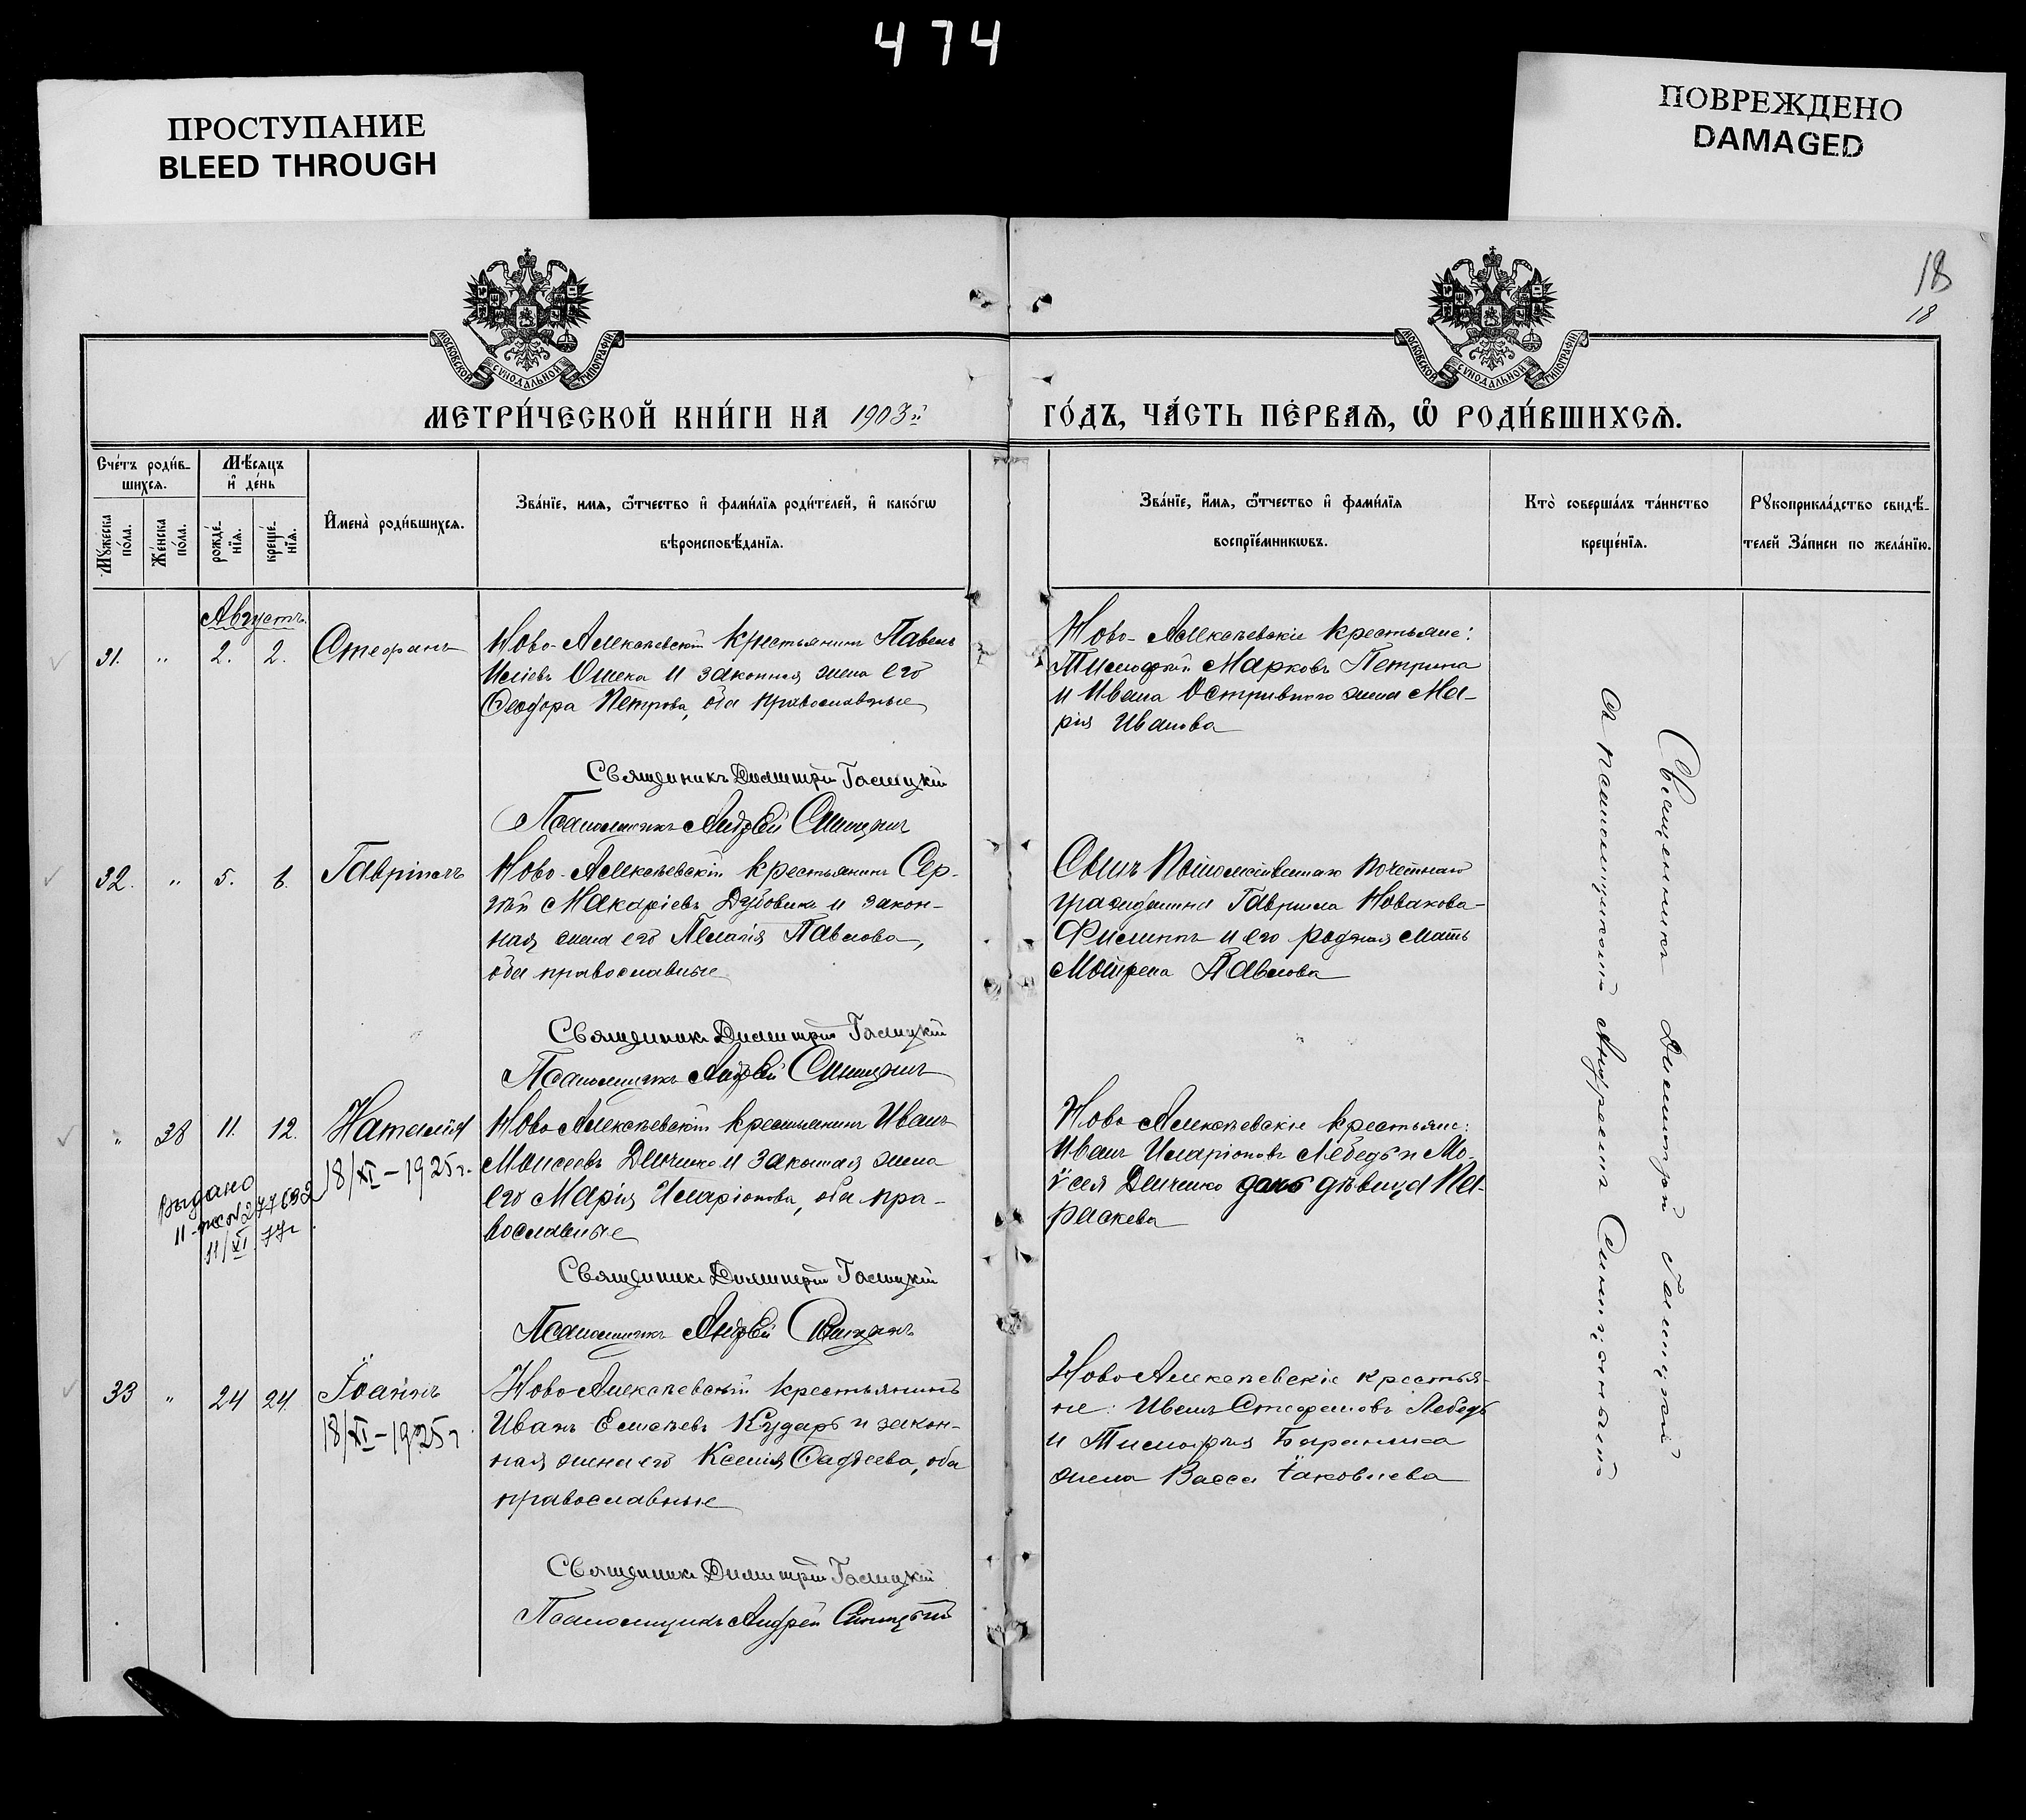 474
ПРОСТУПАНИЕ
BLEED THROUGH
ПОВРЕЖДЕНО
DAMAGED
18
18
МОСКОВСКОЙ СУНОДАЛЬНОЙ ТИПОГРАФІИ
МОСКОВСКОЙ СУНОДАЛЬНОЙ ТИПОГРАФІИ
МЕТРИ́ЧЕСКОЙ КНИ́ГИ НА 1903й
ГО́ДЪ, ЧА́СТЬ ПЕ́РВАѦ, Ѡ РОДИ́ВШИХСѦ.
Сче́тъ роди́в-
шихсѧ.
Мѣ́сѧцъ
и҆ де́нь
Мꙋ́жеска
по́ла.
Же́нска
по́ла.
рожде́-
нїѧ.
креще́-
нїѧ.
И҆мена̀ роди́вшихсѧ.
Зва́нїе, имѧ, ѻ҆́тчество и҆ фами́лїѧ роди́телей, и҆ како́гѡ
вѣроисповѣ́данїѧ.
Зва́нїе, и҆́мѧ, ѻ҆́тчество и҆ фами́лїѧ
воспрїе́мникѡвъ.
Кто̀ соверша́лъ та́инство
креще́нїѧ.
Рꙋкоприкла́дство свидѣ́-
телей За́писи по жела́нїю.
Августъ
31. " 2. 2. Стефанъ
Ново-Алексѣевскій крестьянинъ Павелъ
и законная жена его
Ѳеодора Петрова, оба православные
Священникъ Димитрій Галицкій
Псаломщикъ Андрей Синицкій
Ново-Алексѣевскіе крестьяне:
Тимофей Марковъ Петрина
и Ивана Остривного жена Ма-
рія Иванова
32. " 5. 6. Гавріилъ
Ново-Алексѣевскій крестьянинъ Сер-
гѣй Макаріевъ и закон-
ная жена его Пелагія Павлова,
оба православные
Священникъ Димитрій Галицкій
Псаломщикъ Андрей Синицкій
Сынъ почетнаго
гражданина Гавриила Новакова-
Филиппъ и его родная мать
Мотрена Павлова
" 38 11. 12. Наталия
18/XI-1925г.
Выдано
11/XI 77г
Ново-Алексѣевскій крестьянинъ Иванъ
Моисеевъ Демченко и законная жена
его Марія Иларіонова, оба пра-
вославные
Священникъ Димитрій Галицкій
Псаломщикъ Андрей Синицкій
Ново Алексѣевскіе крестьяне:
Иванъ Иларіоновъ Лебедь и Мо-
ѵсея Демченко дочь дѣвица Па-
раскева
33 " 24 24. Іоаннъ
18/XI-1925г
Ново Алексѣевскій крестьянинъ
Иванъ Кударь и закон-
ная жена его Ксенія Фадѣева, оба
православные
Священникъ Димитрій Галицкій
Псаломщикъ Андрей Синицкій
Ново Алексѣевскіе крестья-
не: Иванъ Стефановъ Лебедь
и Тимофея Баранника
жена Васса Іаковлева
Священникъ Димитрій Галицкій
съ псаломщикомъ Андреемъ Синицкимъ